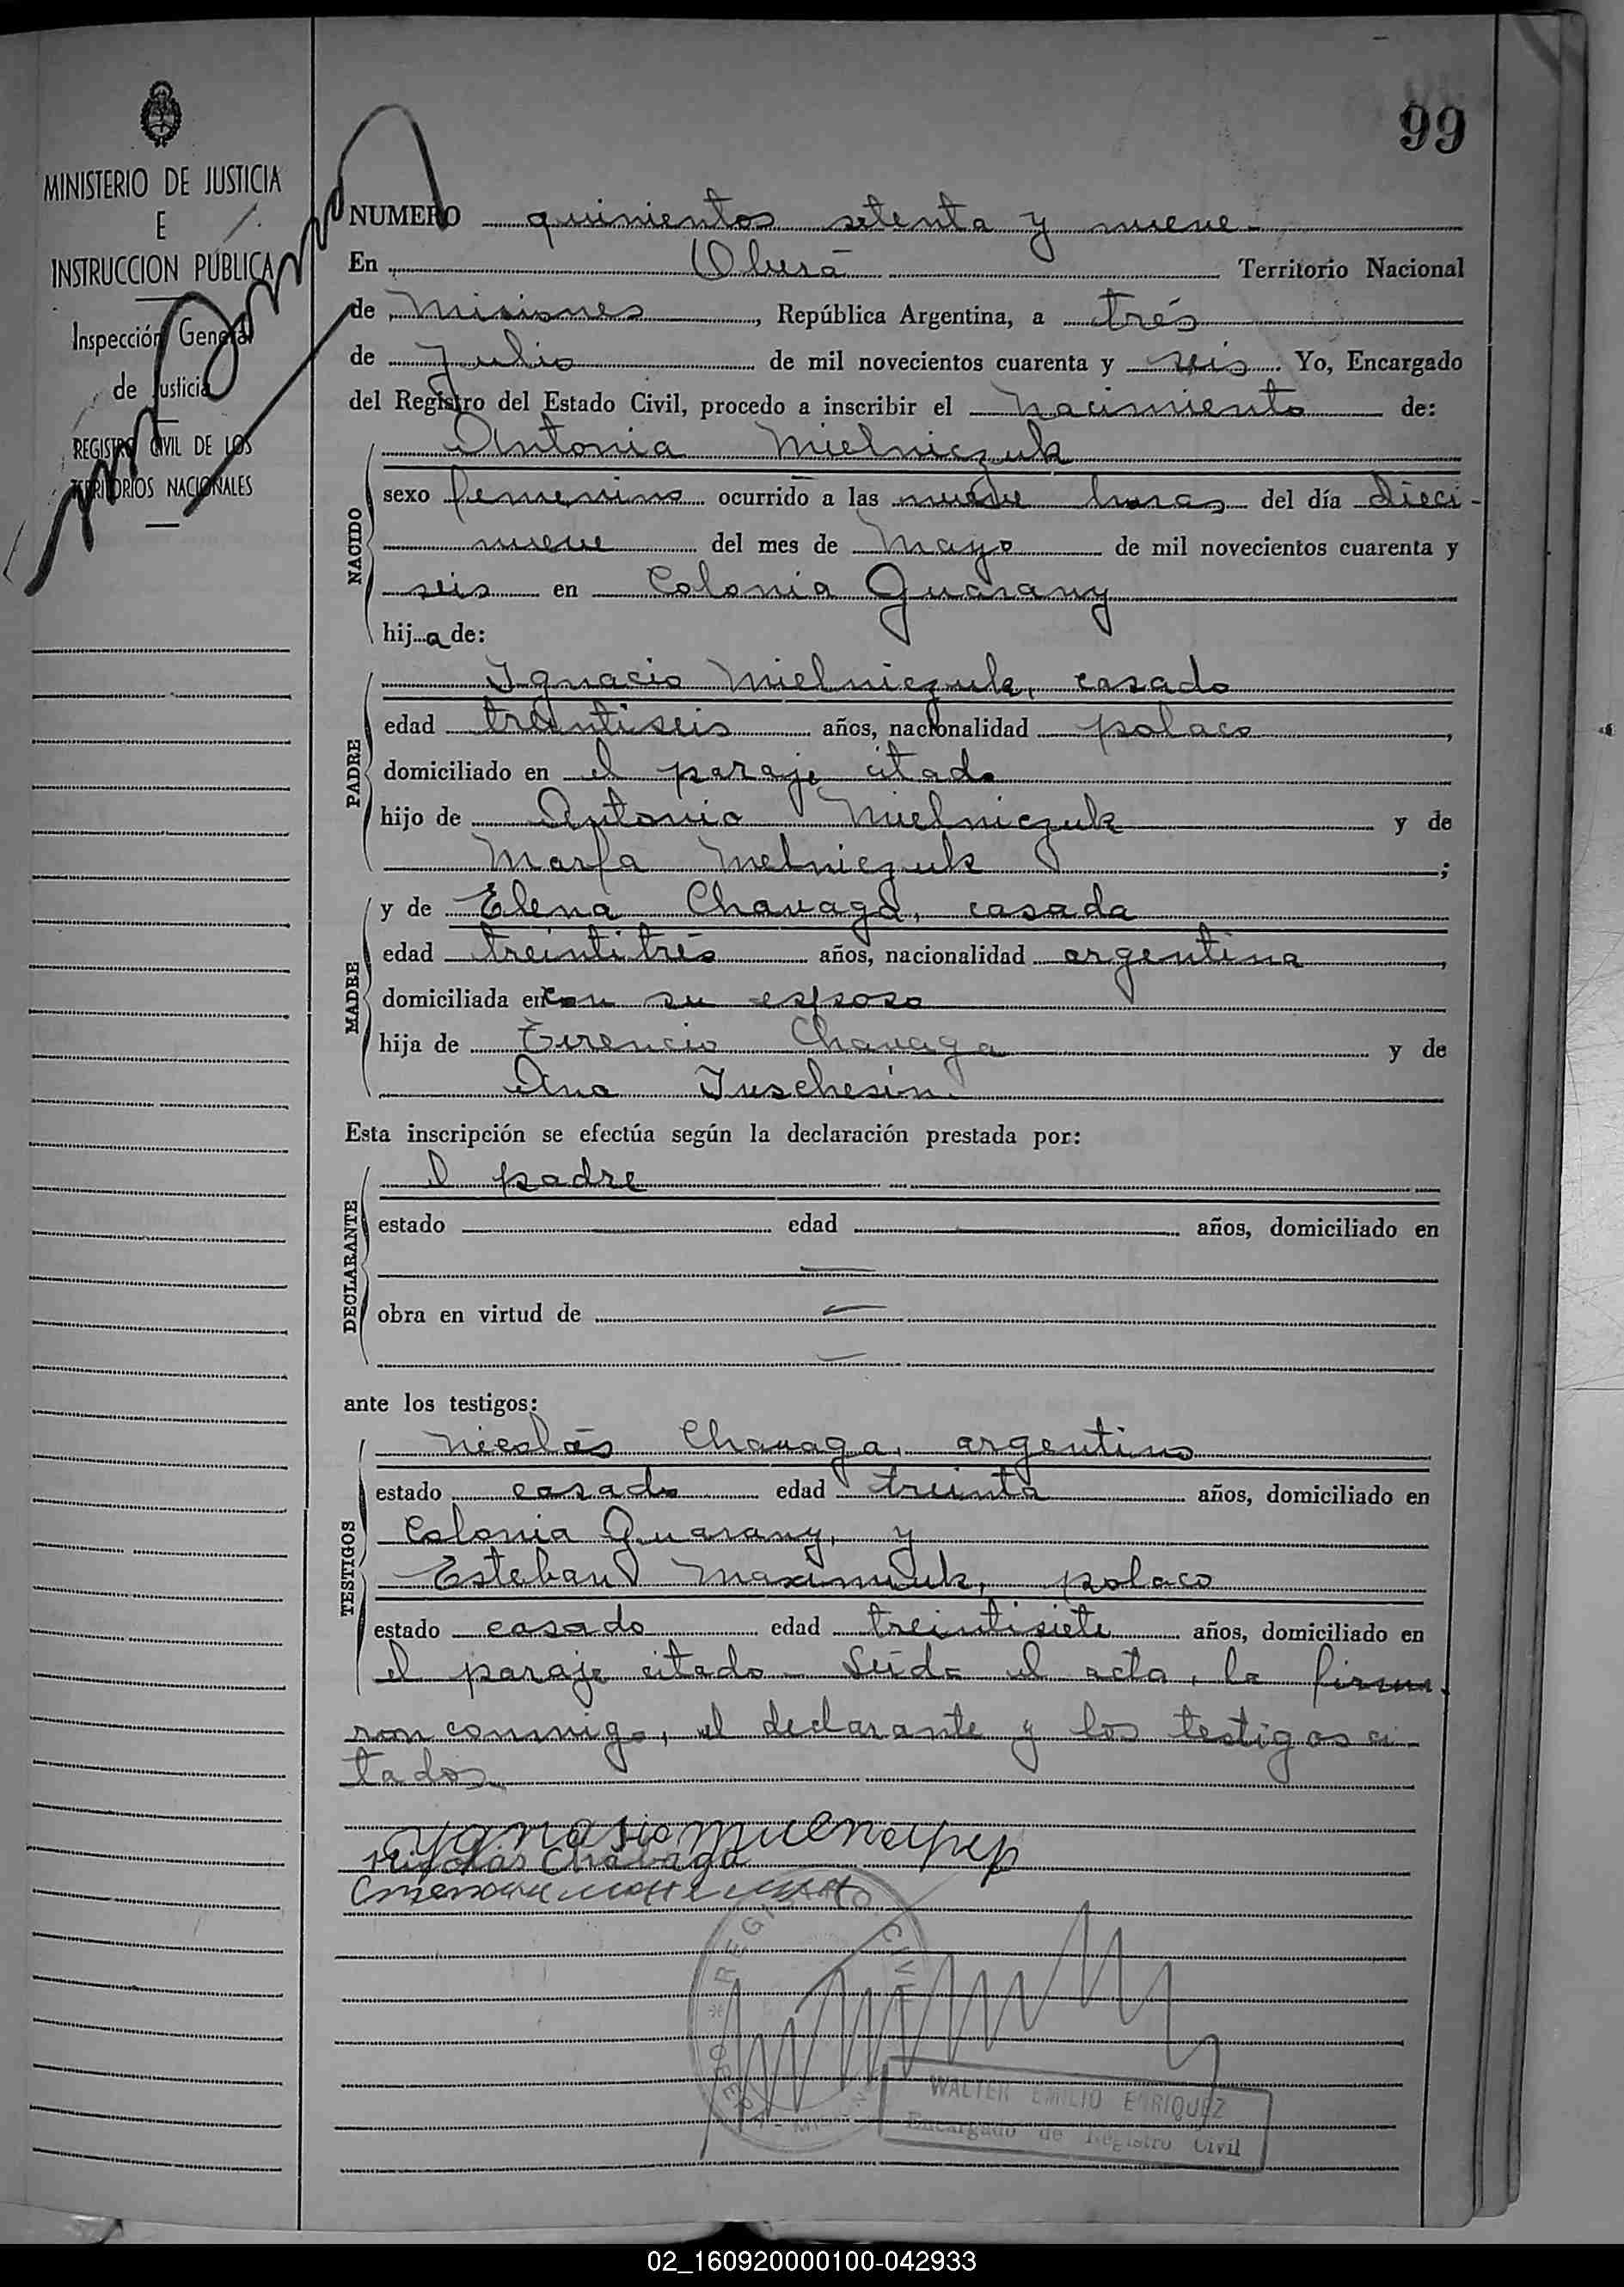 99
MINISTERIO DE JUSTICIA
E
INSTRUCCION PÚBLICA
Inspección General
de Justicia
REGISTRO CIVIL DE LOS
TERRITORIOS NACIONALES
NUMERO quinientos setenta y nueve
En Oberá Territorio Nacional
de Misiones, República Argentina, a trés
de Julio de mil novecientos cuarenta y seis. Yo, Encargado
del Registro del Estado Civil, procedo a inscribir el nacimiento de:
Antonia Mielniczuk
NACIDO
sexo femenino ocurrido a las nueve horas del día dieci-
nueve del mes de Mayo de mil novecientos cuarenta y
seis en Colonia Guarany
hija de:
Ignacio Mielniczuk, casado
PADRE
edad treintiseis años, nacionalidad polaco,
domiciliado en el paraje citado
hijo de Antonio Mielniczuk y de
Marfa Melniczuk;
MADRE
y de Elena Chavaga, casada
edad treintitrés años, nacionalidad argentina,
domiciliada en con su esposo
hija de Terencio Chavaga y de
Ana Juschesin.
Esta inscripción se efectúa según la declaración prestada por:
DECLARANTE
el padre
estado edad años, domiciliado en
obra en virtud de
ante los testigos:
TESTIGOS
Nicolás Chavaga, argentino
estado casado edad treinta años, domiciliado en
Colonia Guarany, y
Esteban Maximiuk, polaco
estado casado edad treintisiete años, domiciliado en
el paraje citado - Leída el acta, la firma-
ron conmigo, el declarante y los testigos ci-
tados.
Nigolás Chavaga
REGISTRO CIVIL
WALTER EMILIO ENRIQUEZ
Encargado de Registro Civil
02_160920000100-042933